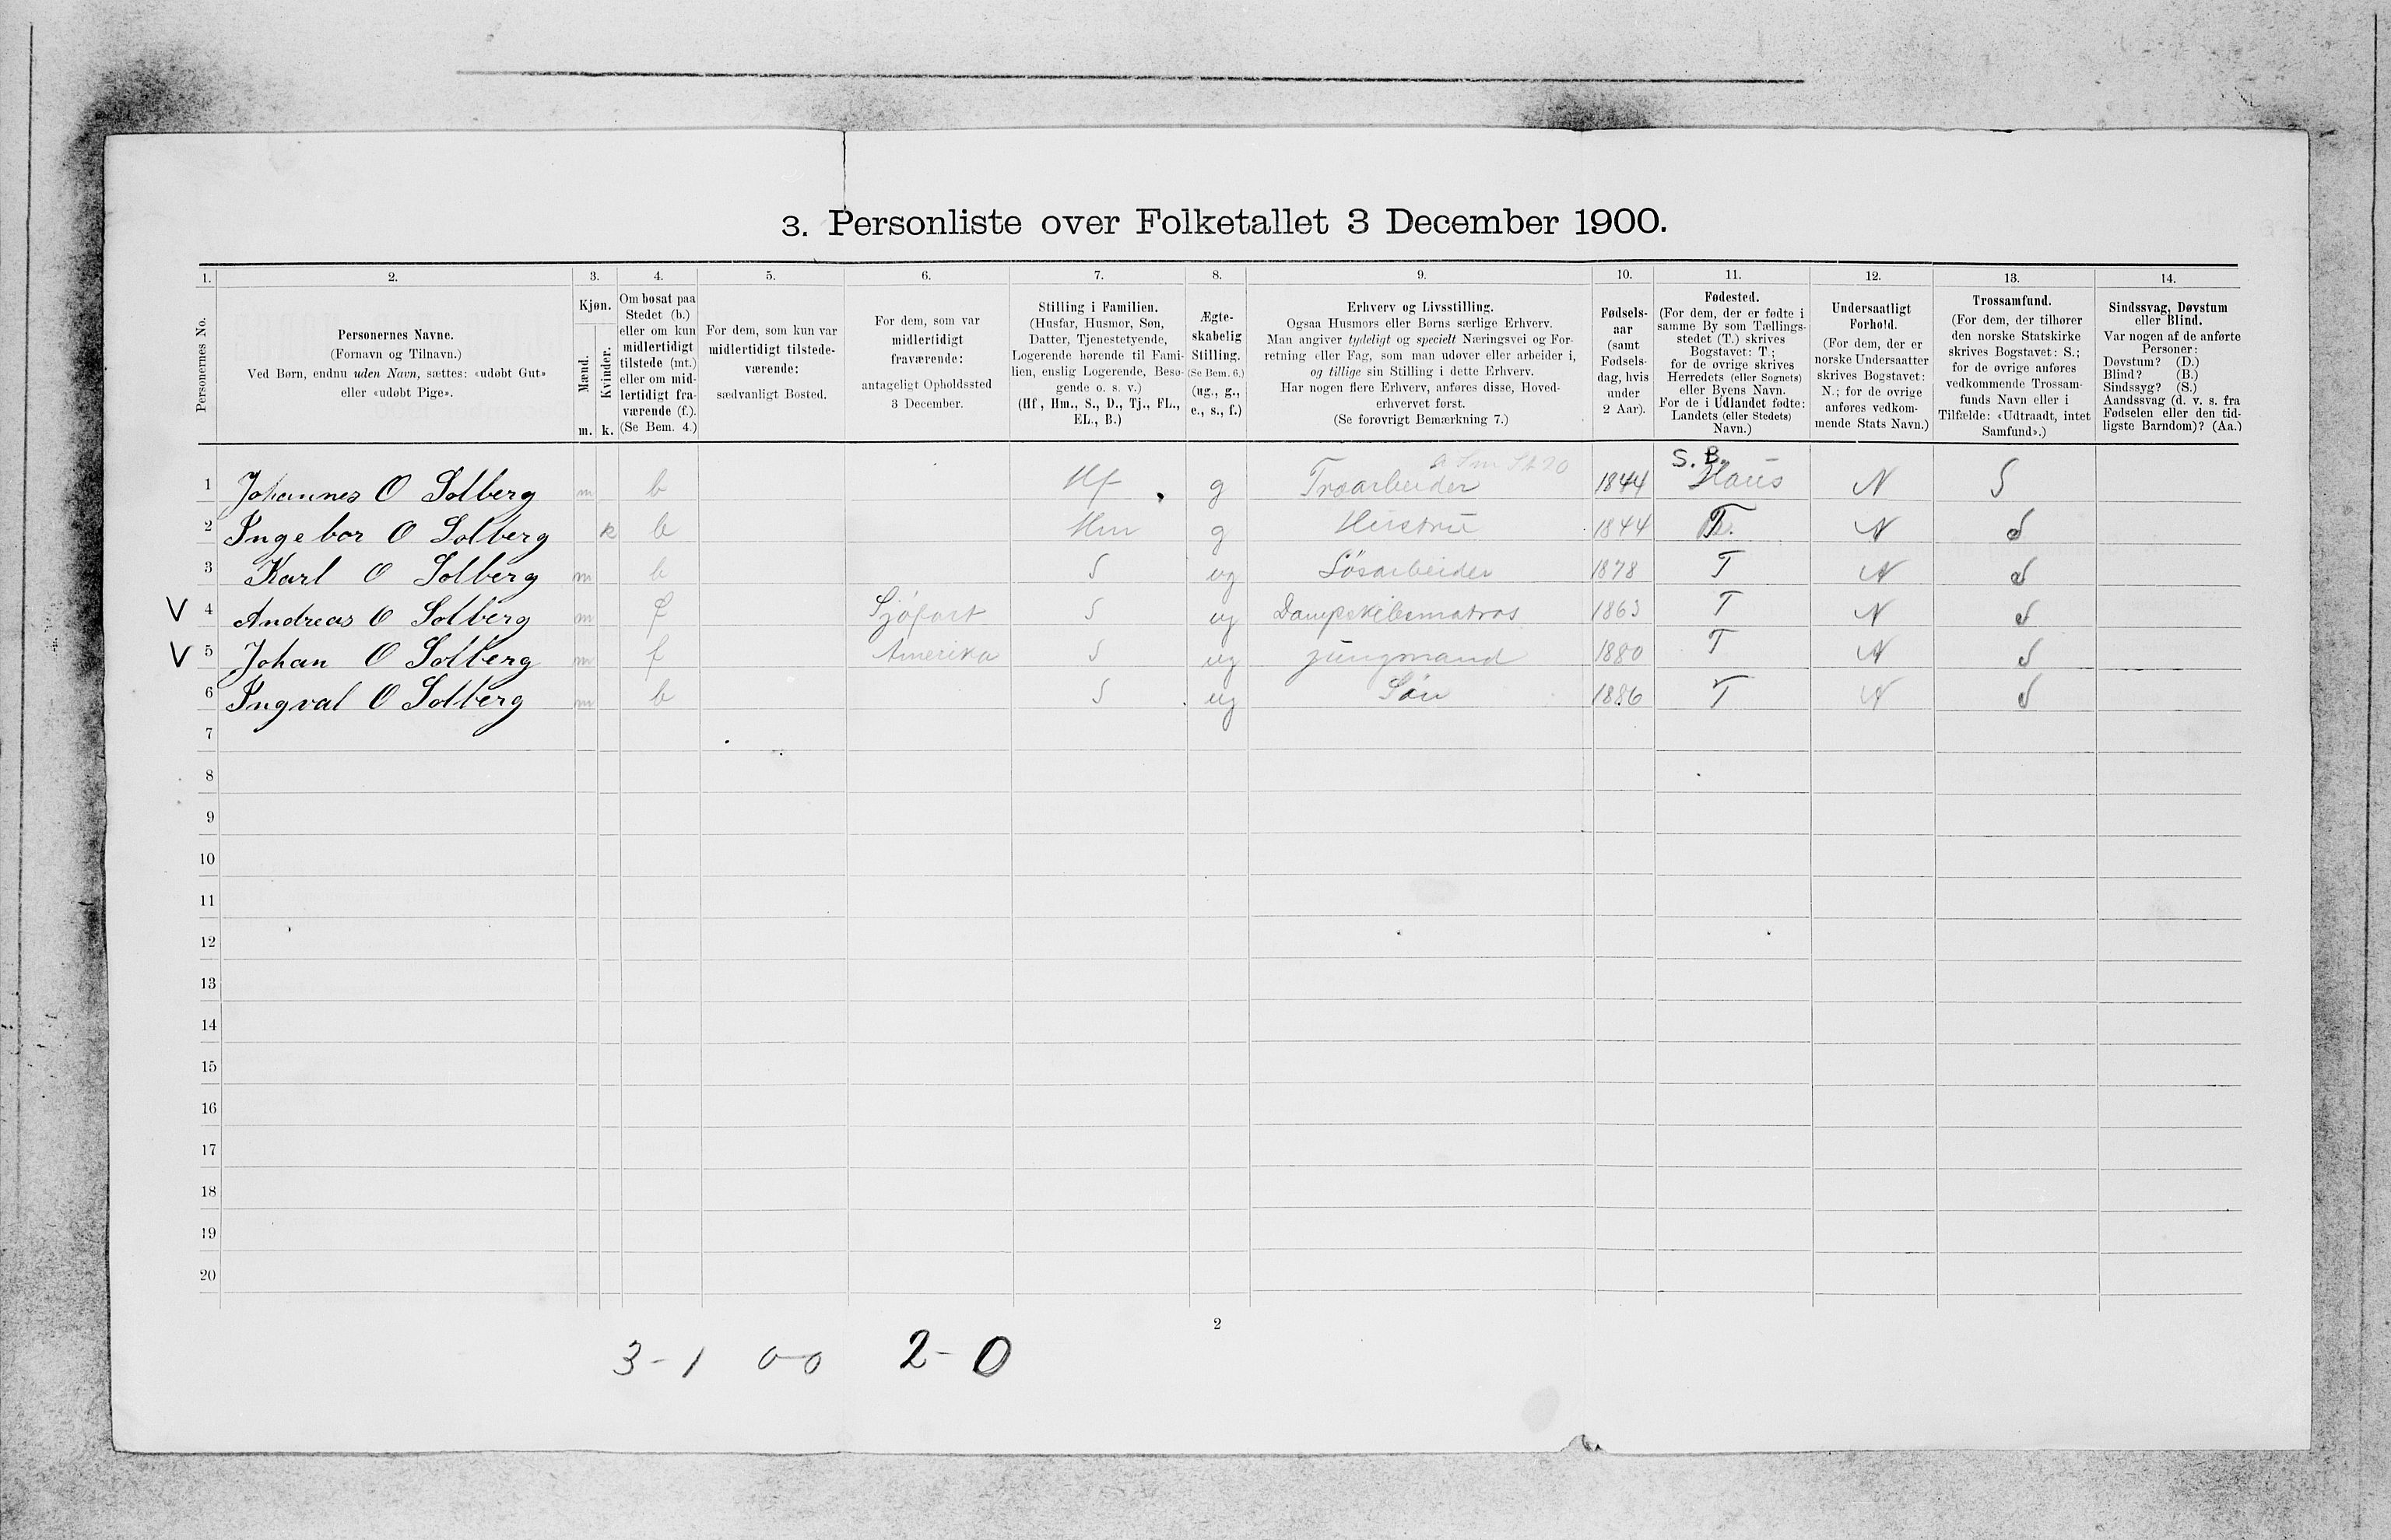 3. Personliste over Folketallet 3 December 1900.
1. 2. 3. 4. 5. 6. 7. 8. 9. 10. 11. 12. 13. 14.
Personernes No.
Personernes Navne.
(Fornavn og Tilnavn.)
Ved Børn, endnu uden Navn, sættes: «udøbt Gut»
eller «udøbt Pige».
Kjøn.
Mænd.
Kvinder.
m. k.
Om bosat paa
Stedet (b.)
eller om kun
midlertidigt
tilstede (mt.)
eller om mid-
lertidigt fra-
værende (f.).
(Se Bem. 4.)
For dem, som kun var
midlertidigt tilstede-
værende:
sædvanligt Bosted.
For dem, som var
midlertidigt
fraværende:
antageligt Opholdssted
3 December.
Stilling i Familien.
(Husfar, Husmor, Søn,
Datter, Tjenestetyende,
Logerende hørende til Fami-
lien, enslig Logerende, Besø-
gende o. s. v.)
(Hf., Hm., S., D., Tj., FL.,
EL., B.)
Ægte-
skabelig
Stilling.
(Se Bem. 6.)
(ug., g.,
e., s., f.)
Erhverv og Livsstilling.
Ogsaa Husmors eller Børns særlige Erhverv.
Man angiver tydeligt og specielt Næringsvei og For-
retning eller Fag, som man udøver eller arbeider i,
og tillige sin Stilling i dette Erhverv.
Har nogen flere Erhverv, anføres disse, Hoved-
erhvervet først.
(Se forøvrigt Bemærkning 7.)
Fødsels-
aar
(samt
Fødsels-
dag, hvis
under
2 Aar).
Fødested.
(For dem, der er fødte i
samme By som Tællings-
stedet (T.) skrives
Bogstavet: T.;
for de øvrige skrives
Herredets (eller Sognets)
eller Byens Navn.
For de i Udlandet fødte:
Landets (eller Stedets)
Navn.)
Undersaatligt
Forhold.
(For dem, der er
norske Undersaatter
skrives Bogstavet:
N.; for de øvrige
anføres vedkom-
mende Stats Navn.)
Trossamfund.
(For dem, der tilhører
den norske Statskirke
skrives Bogstavet: S.;
for de øvrige anføres
vedkommende Trossam-
funds Navn eller i
Tilfælde: «Udtraadt, intet
Samfund».)
Sindssvag, Døvstum
eller Blind.
Var nogen af de anførte
Personer:
Døvstum? (D.)
Blind? (B.)
Sindssyg? (S.)
Aandssvag (d. v. s. fra
Fødselen eller den tid-
ligste Barndom)? (Aa.)
S. B.
1 Johannes O Solberg m b Hf g Træarbeider 1844 Haus N S
2 Ingebor O Solberg k b Hm g Hustru 1844 T. N S
3 Karl O Solberg m b S ug Løsarbeider 1878 T N S
V 4 Andreas O Solberg m f Sjøfart S ug Dampskibsmatros 1863 T N S
V 5 Johan O Solberg m f Amerika S ug jungmand 1880 T N S
6 Ingval O Solberg m b S ug Søn 1886 T N S
7
8
9
10
11
12
13
14
15
16
17
18
19
20
2
3-1 0-0 2-0